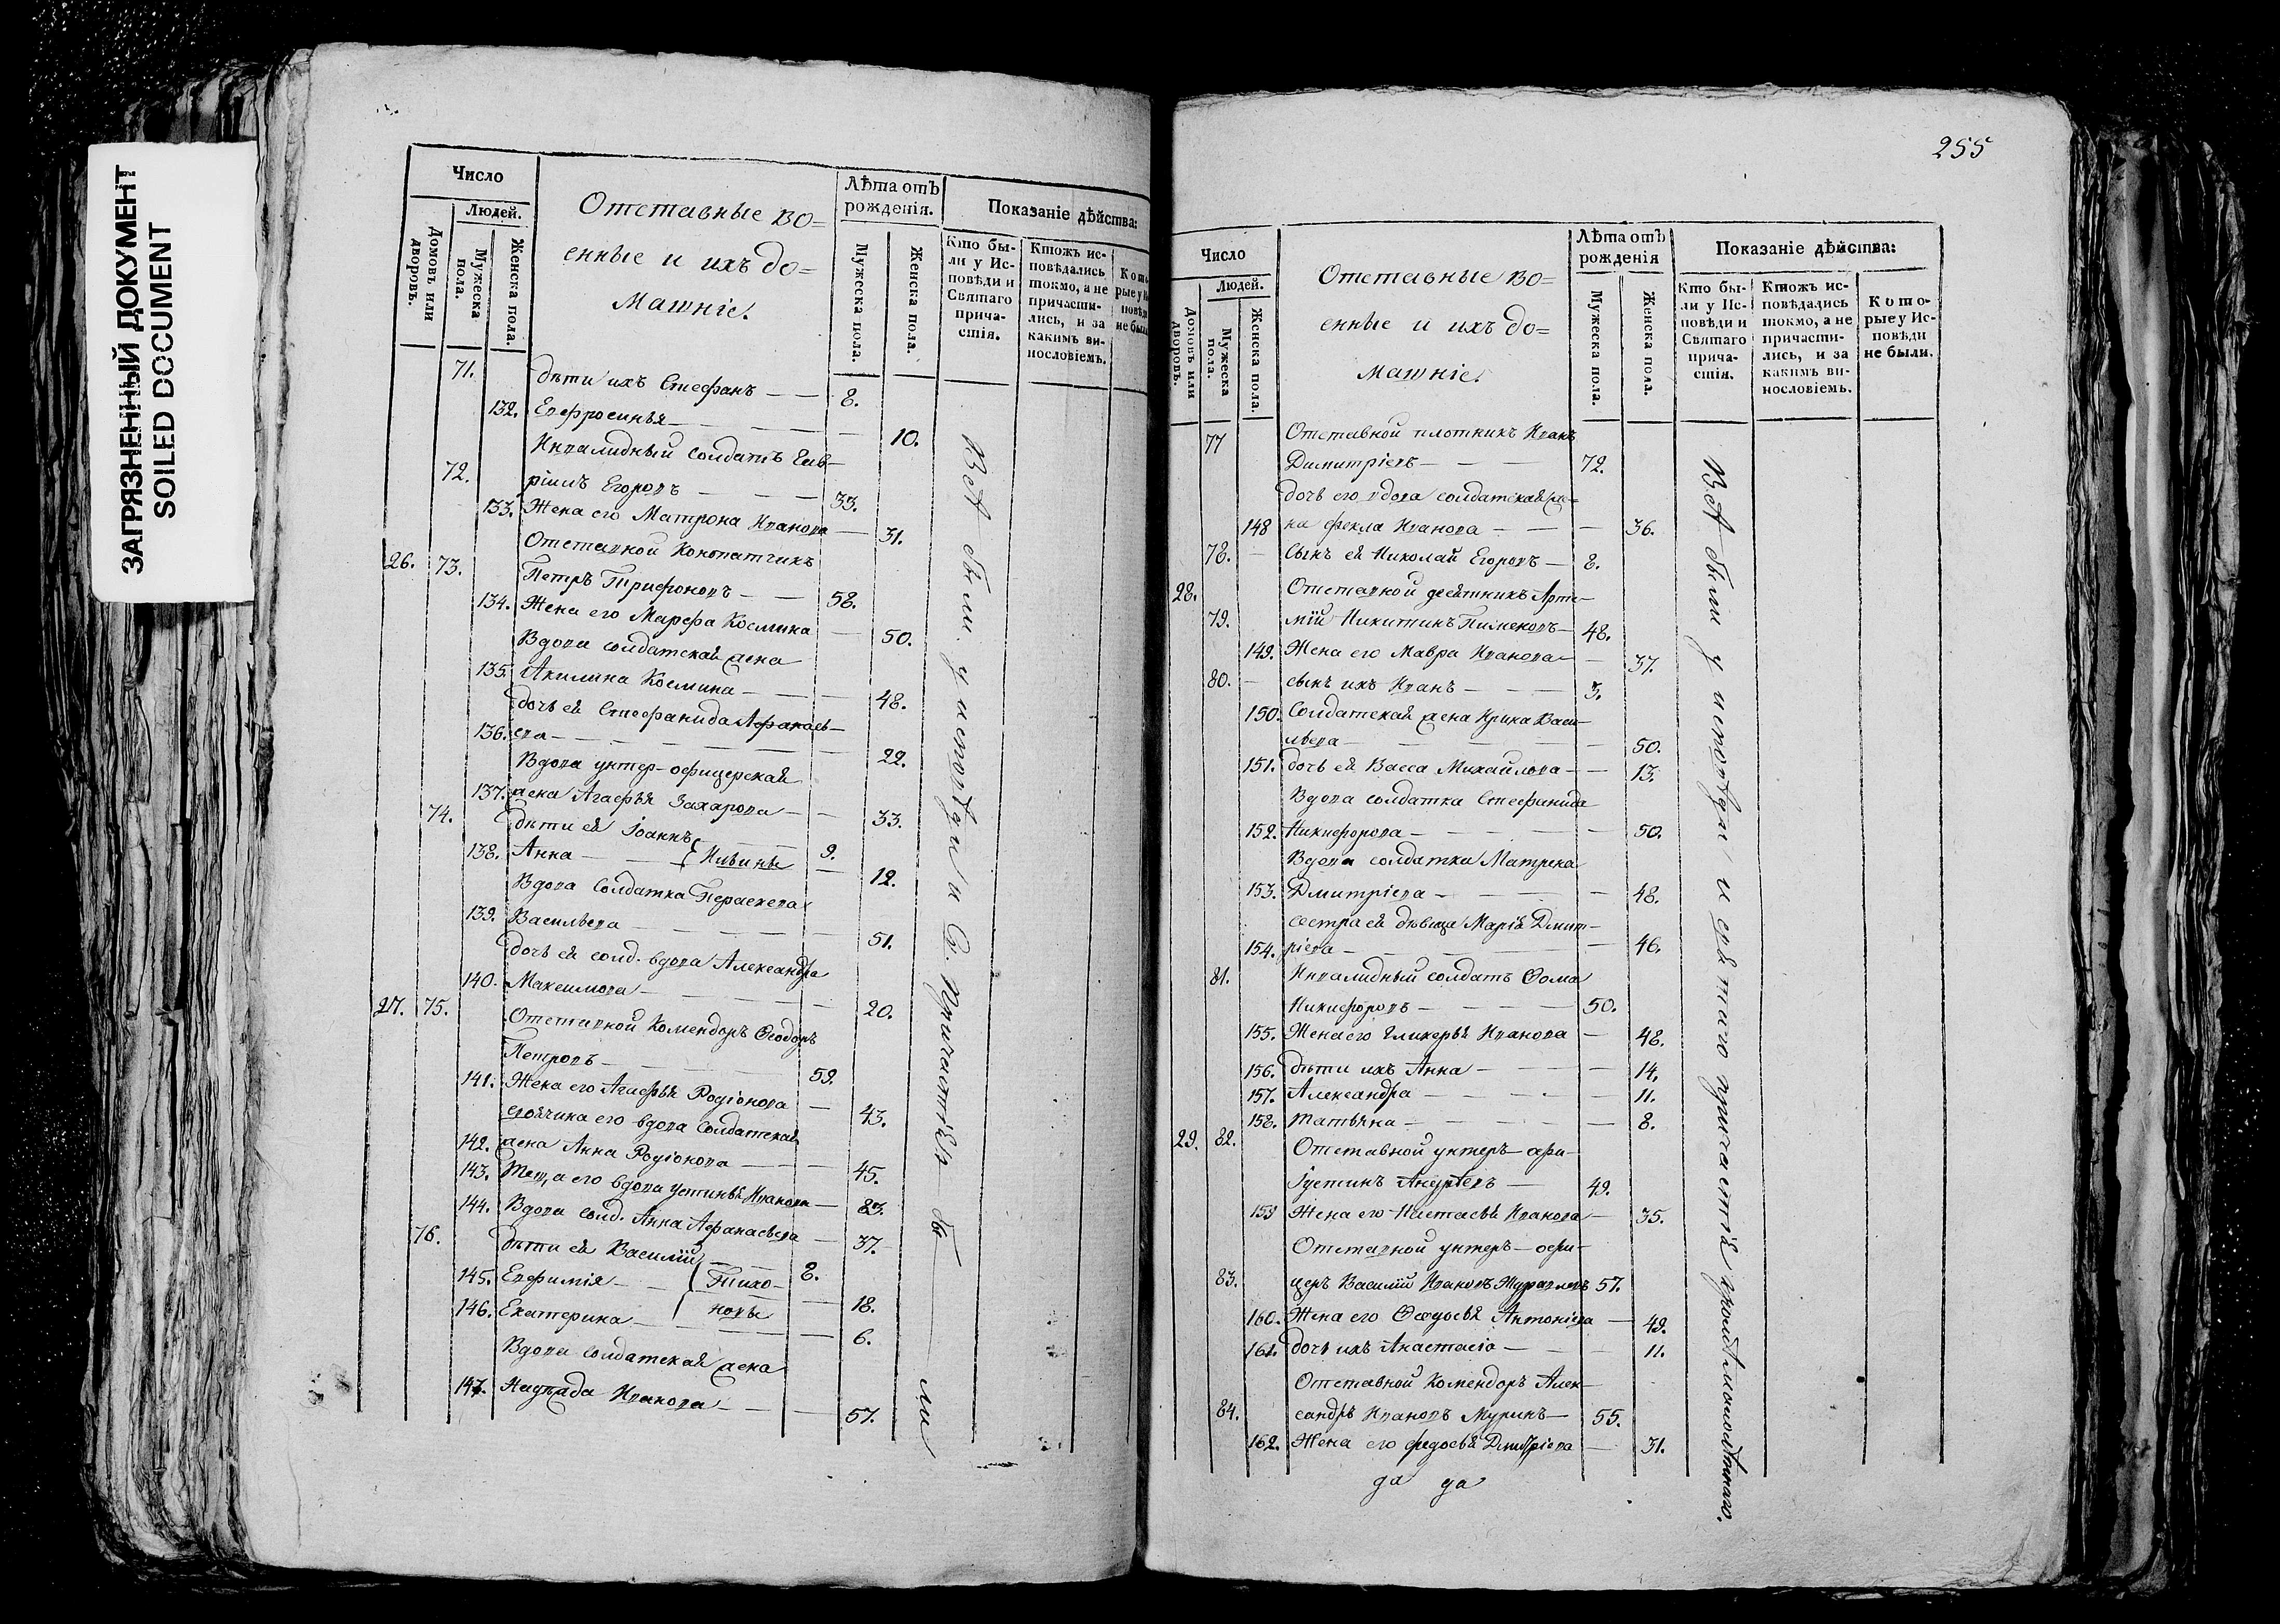 ЗАГРЯЗНЕННЫЙ ДОКУМЕНТ
SOILED DOCUMENT
Число
Людей.
Домовъ или дворовъ.
Мужеска пола.
Женска пола.
Отставные во=
енные и ихъ до=
машніе.
Лѣта отъ рожденія.
Мужеска пола.
Женска пола.
Показаніе дѣйства:
Кто бы-
ли у Ис-
повѣди и
Святаго
прича-
стія.
Ктожъ ис-
повѣдались
токмо, а не
причасти-
лись, и за
какимъ ви-
нословіемъ.
71. дѣти ихъ Стефанъ — — 8.
132. Евфросинья — — 10.
Инвалидный солдатъ Гав-
72. ріилъ Егоровъ — — — 33.
133. Жена его Матрона Иванова — 31.
Отставной Конопатчикъ
26. 73. Петръ Трифоновъ — — 58.
134. Жена его Марфа Космина — 50.
Вдова солдатская жена
135. Акилина Космина — — — 48.
дочь ея Стефанида Афанась-
136. ева — — — 22.
Вдова унтер-офицерская
137. жена Агафья Захарова — — 33.
74. дѣти ея Іоаннъ — 9.
138. Анна — — Ивины — 12.
Вдова Солдатка Параскева
139. Васильева — — — 51.
дочь ея солд. вдова Александра
140. Максимова — — — 20.
27. 75. Отставной Комендоръ Ѳеодоръ
Петровъ — — — 59.
141. Жена его Агафья Родіонова — 43.
своячина его вдова Солдатская
142. жена Анна Родіонова — — — 45.
143. Теща его вдова Устинья Иванова — 83.
144. Вдова солд. Анна Афанасьева — 37.
76. дѣти ея Василий — — 8.
145. Евфимія — — Тихо- — 18.
146. Екатерина — новы — 6.
Вдова солдатская жена
147. Надежда Иванова — — — 57.
Всѣ были у исповѣди и Св. Причастія — бы — ли
255
Число
Людей.
Домовъ или дворовъ.
Мужеска пола.
Женска пола.
Отставные во=
енные и ихъ до=
машніе.
Лѣта отъ рожденія
Мужеска пола.
Женска пола.
Показаніе дѣйства:
Кто бы-
ли у Ис-
повѣди и
Святаго
прича-
стія.
Ктожъ ис-
повѣдались
токмо, а не
причасти-
лись, и за
какимъ ви-
нословіемъ.
Кото-
рые у Ис-
повѣди
не были.
77 Отставной плотникъ Иванъ
Димитріевъ — — — 72.
дочь его вдова солдатская же-
148 на Фекла Иванова — — — 36.
78. — Сынъ ея Николай Егоровъ — 8.
28. Отставной десятникъ Арте-
79. мій Никитинъ Пименовъ — 48.
149. Жена его Мавра Иванова — 37.
80. — сынъ ихъ Иванъ — — — 3.
150. Солдатская жена Ирина Васи-
льева — — — — 50.
151. дочь ея Васса Михайлова — — 13.
Вдова солдатка Стефанида
152. Никифорова — — — — 50.
Вдова солдатка Матрена
153. Дмитріева — — — — 48.
Сестра ея дѣвица Марія Дмит-
154. ріева — — — — 46.
81. Инвалидный солдатъ Ѳома
Никифоровъ — — — 50.
155. Жена его Гликерья Иванова — 48.
156. дѣти ихъ Анна — — — 14.
157. Александра — — — — 11.
158. Татьяна — — — — 8.
29. 82. Отставной унтеръ-офи-
Іустинъ Андреевъ — 49.
159 Жена его Настасья Иванова — 35.
Отставной унтеръ-офи-
83. церъ Василій Ивановъ Журавлевъ 57.
160. Жена его Ѳедосья Антоніева — 49.
161. дочь ихъ Анастасіа — — — 11.
Отставной Комендоръ Алек-
84. сандръ Ивановъ Муринъ — 55.
162. Жена его Федосья Дмитріева — 31.
да да
Всѣ были у исповѣди и святаго причастія кромѣ малолѣтнаго.